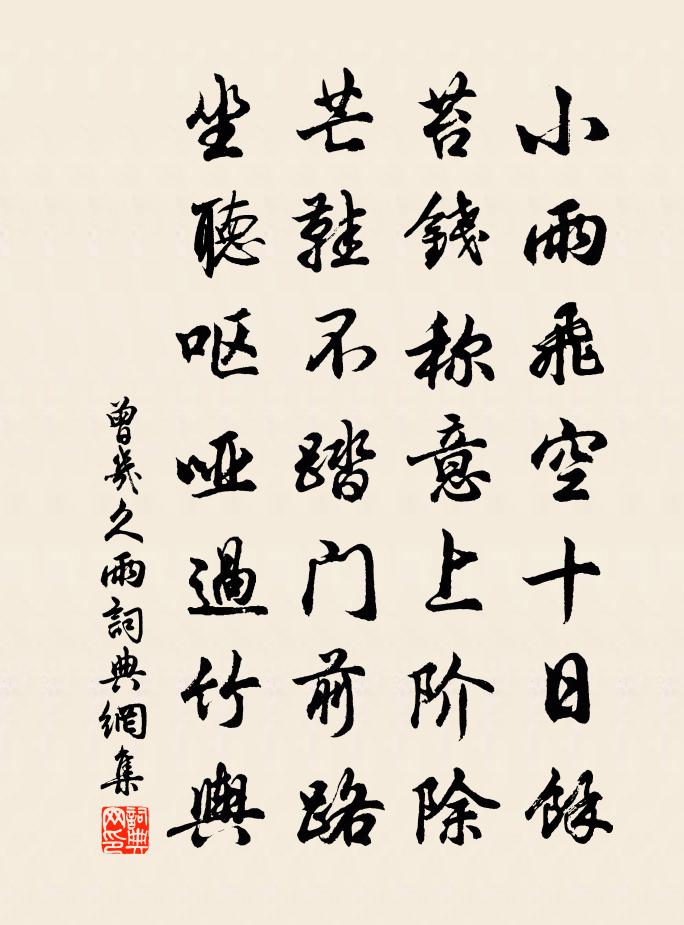 小雨飛空十日餘
苔錢称意上阶除
芒鞋不踏门前路
坐聽呕哑過竹輿
曾幾久雨詞典網集
詞典网印